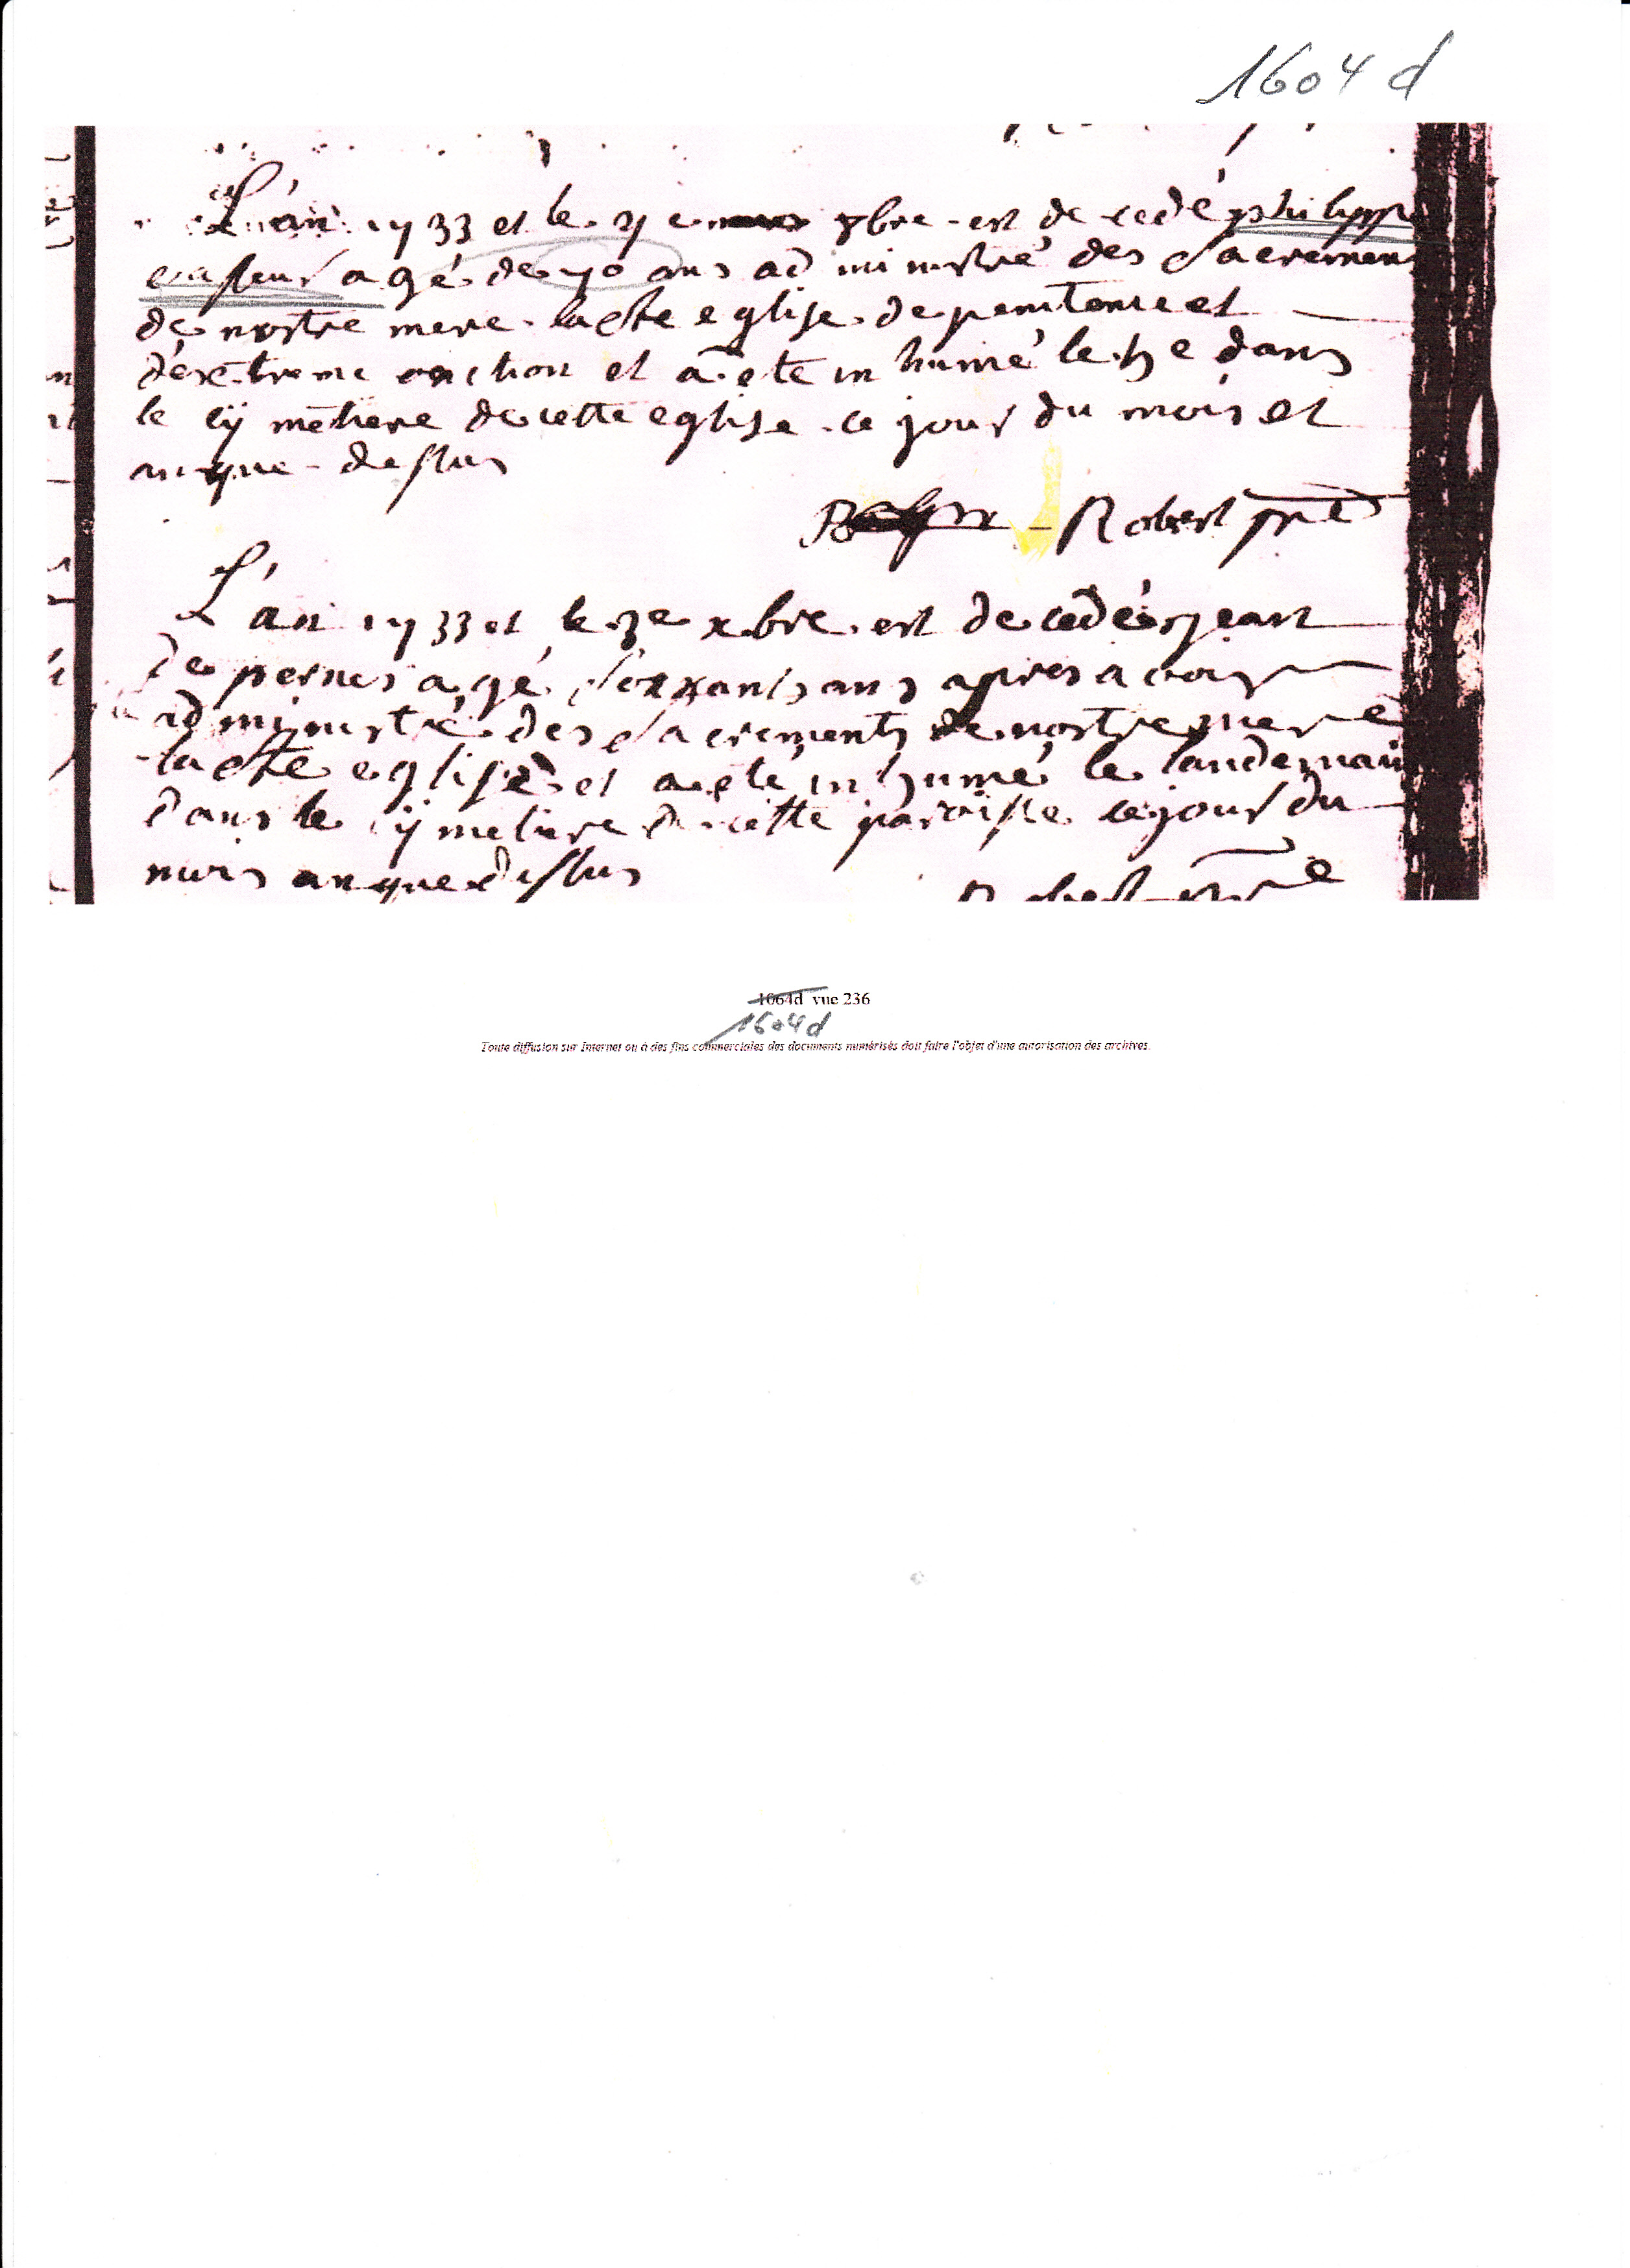 1604 d
L'an 1733 et le e 8bre est de cedé philippe
agé de 70 ans ad ministré des sacremens
de nostre mere la ste eglise de penitence et
d'exĕtreme onction et a ete in humé le dans
le cÿ metiere de cette eglise ce jour du mois et
an que dessus
Robert pre
L'an 1733 et le 3e xbre est de cedé jean
de pernes agé soixxants ans apres avoir
administré des sacrements de nostre mere
la ste eglise et a eté in humé le landemain
dans le cÿ metiere de cette paroisse ce jour du
mois an que dessus
Robert pre
1064d vue 236
1604d
Toute diffusion sur Internet ou à des fins commerciales des documents numérisés doit faire l'objet d'une autorisation des archives.